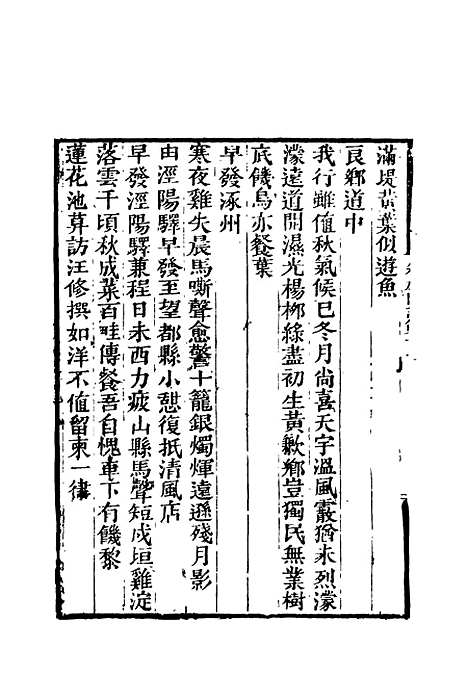 滿堤黃葉似遊魚
良鄉道中
我行雖值秋氣候已冬月尚喜天宇溫風霰猶未烈濛
濛遠道開濕光楊柳綠盡初生黃歉鄉豈獨民無業樹
底饑烏亦餐葉
早發涿州
寒夜雞失晨馬嘶聲愈驚十籠銀燭煇遠遜殘月影
由涇陽驛早發至望都縣小憇復抵清風店
早發涇陽驛兼程日未西力疲山縣馬聲短戍垣雞淀
落雲千頃秋成菜百畦傳餐吾自愧車下有饑黎
蓮花池荐訪汪修撰如洋不值留柬一律